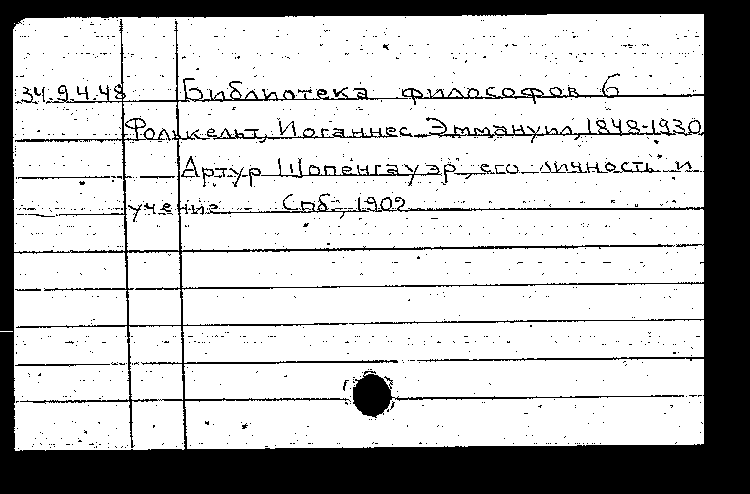 34.9.4.48 Библиотека философов 6
Фолькельт, Иоганнес Эммануил, 1848-1930
Артур Шопенгауэр, его личность и
учение - Спб, 1902